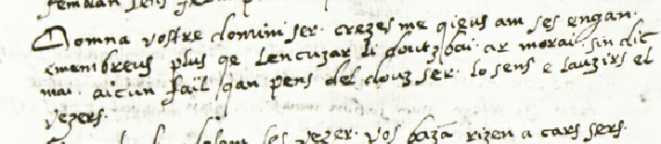 Domna vostre domini ser. crezes me qieus am ses engan.
e menbreus plus qe lencuzar li doutz bai. ar morai. sin dic
mai. aicun fail qan pens del douz ser. lo sens e lauzirs el
vezers.
ses vezer. vos baza rizen a cars sers.